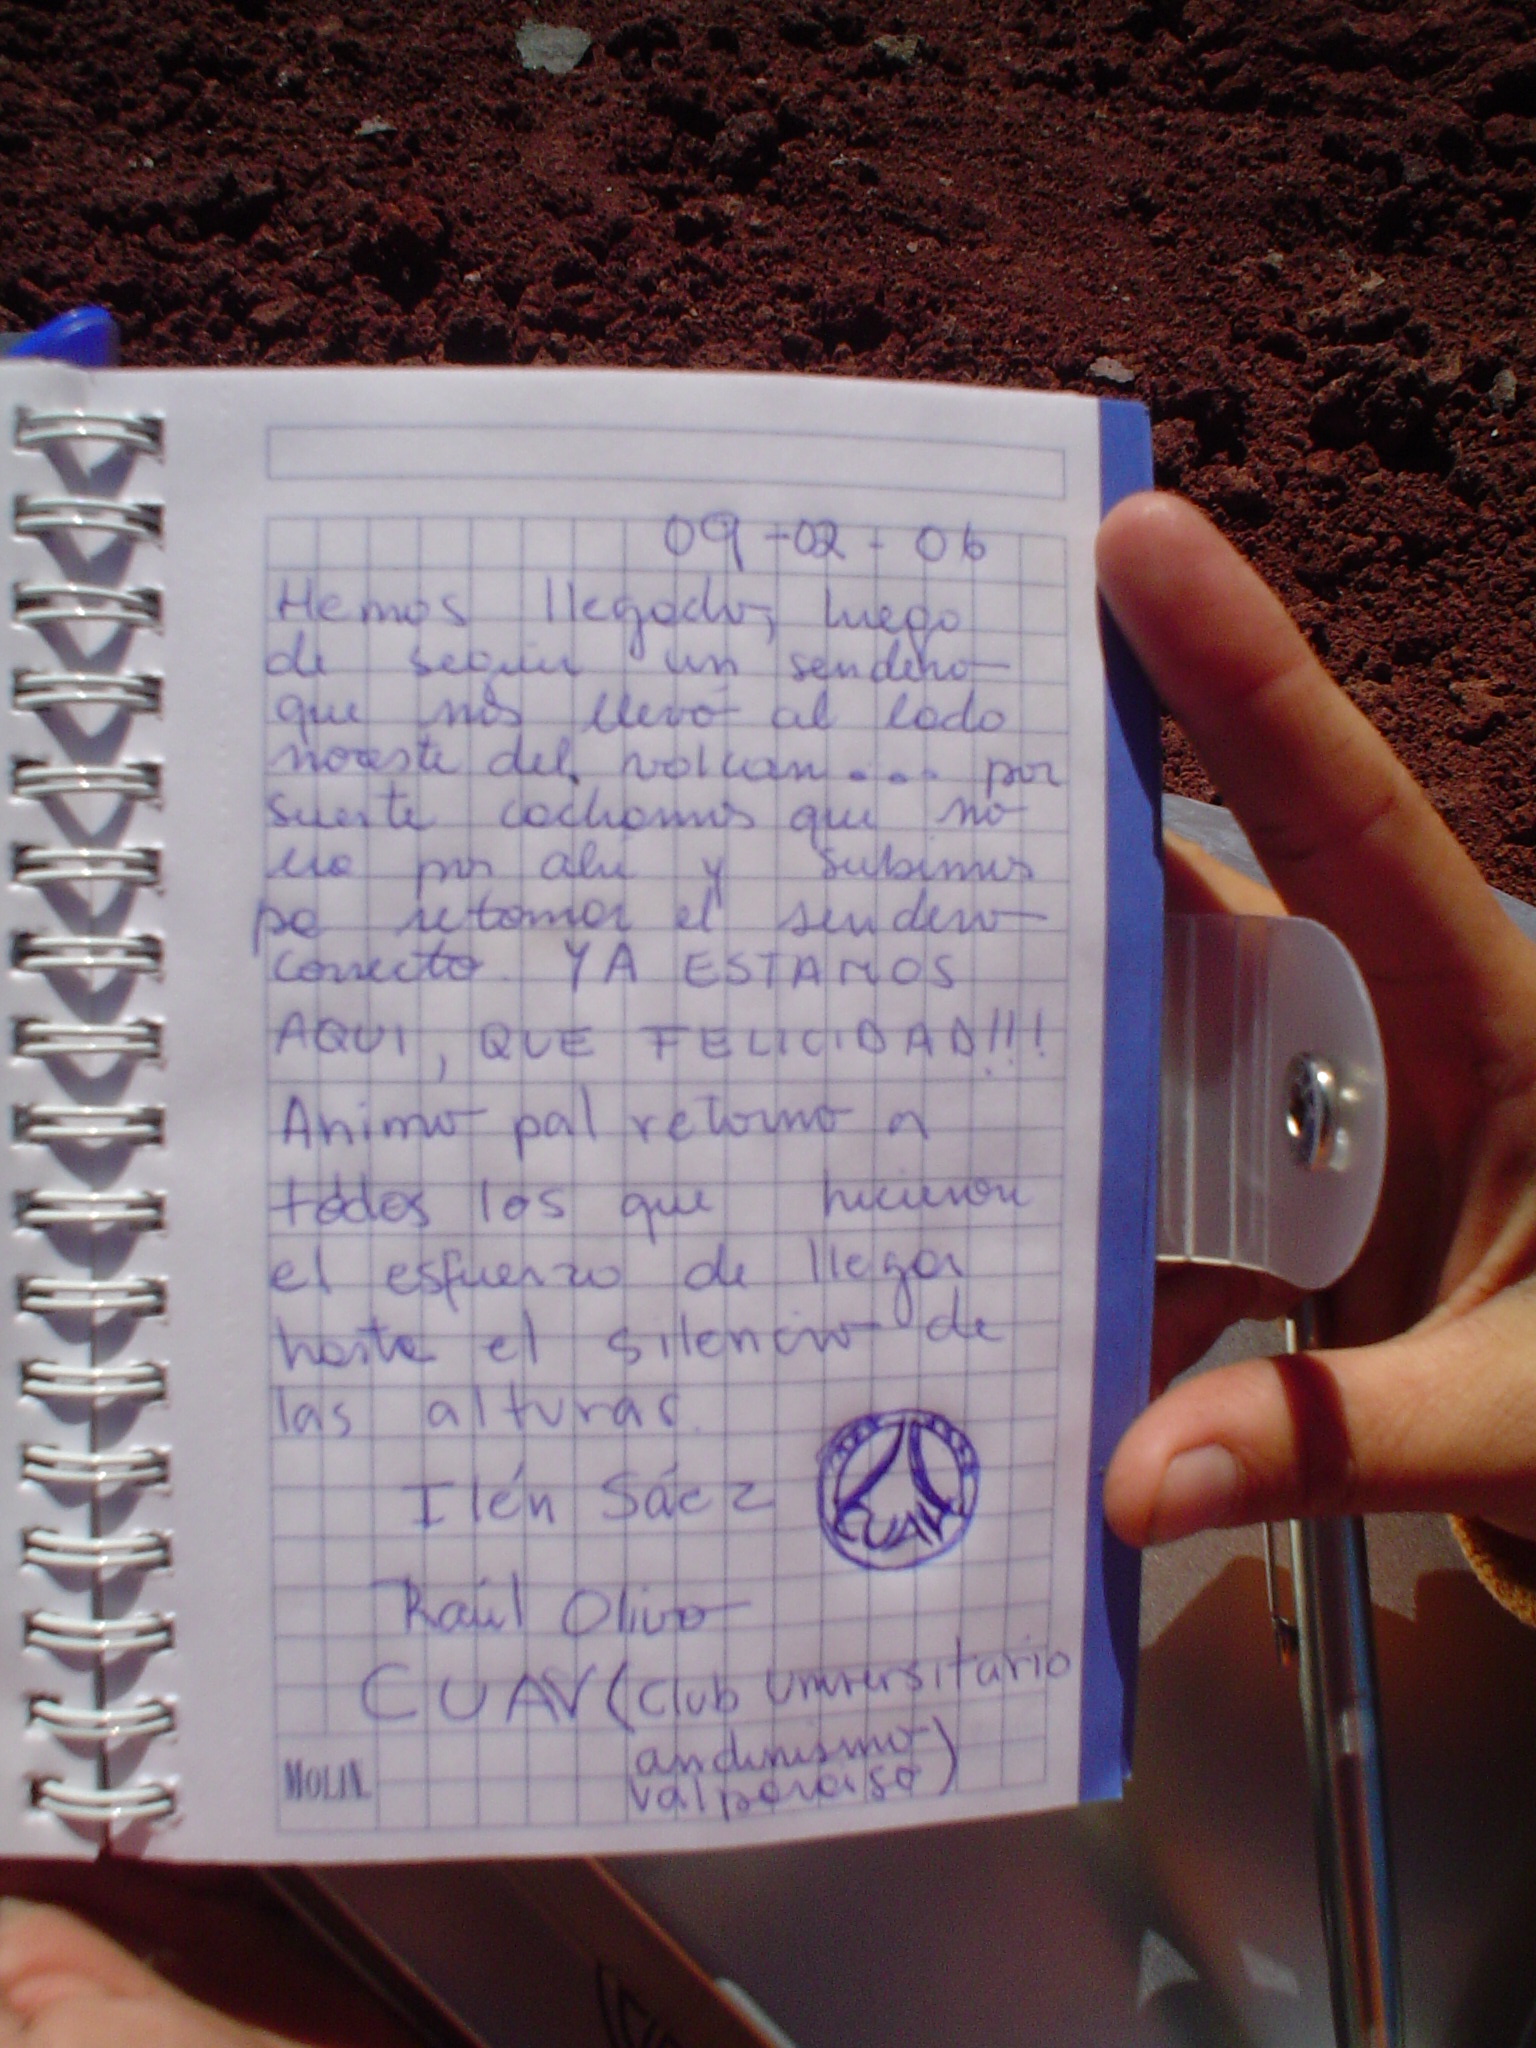 09-02-06
Hemos llegado, luego
de seguir un sendero
que nos llevó al lado
noreste del volcan.... por
suerte cachamos que no
era por ahi y subimos
pa retomar el sendero
correcto. YA ESTAMOS
AQUI, QUE FELICIDAD!!!
Animo pal retorno a
todos los que hicieron
el esfuerzo de llegar
hasta el silencio de
las alturas.
Ilén Sáez
CUAV
Raúl Olivo
CUAV (Club Universitario
andinismo
valparaiso)
MOLIN